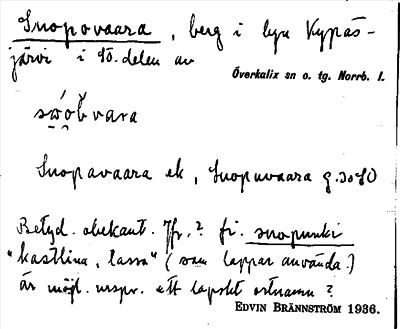 Suopovaara, berg i byn Kypäs-
järvi i sö. delen av
Överkalix sn o. tg. Norrb. l.
Suopavaara ek, Suopuvaara g.
Betyd. obekant. Jfr.? fi. suopunki
"kastlina, lasso" (som lappar använda.)
är möjl. urspr. ett lapskt ortnamn?
EDVIN BRÄNNSTRÖM 1936.